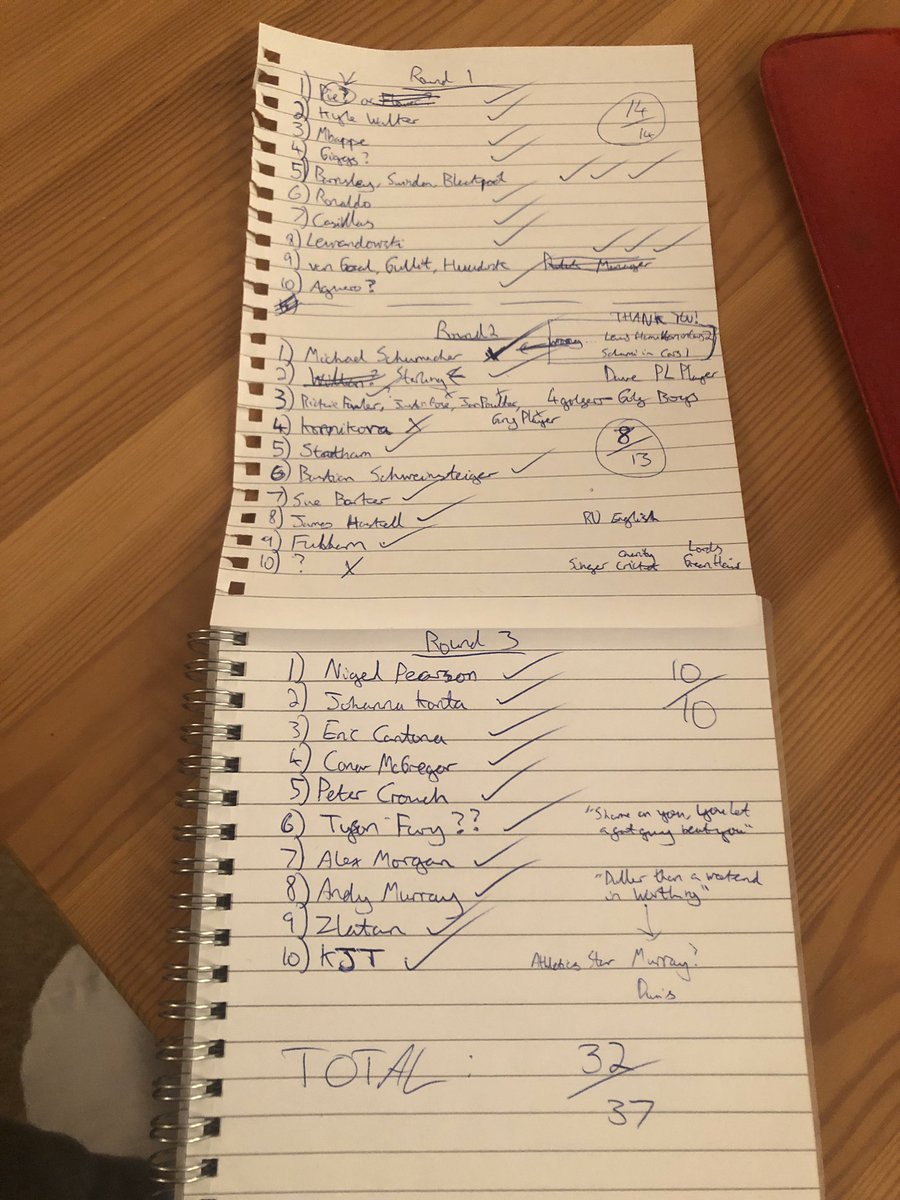 Round 1
1) Pie? or
2) Kyle Walker
3) Mbappe
4) Giggs?
14/14
5) Barnsley, Swindon, Blackpool
6) Ronaldo
7) Casillas
8) Lewandowski
9) van Gaal, Gullit, Hiddink
10) Aguero?
Round 2
THANK YOU!
1) Michael Schumacher
Lewis Hamilton in Cars 2
Schumi in Cars 1
2) Sterling
PL Player
3) Rickie Fowler, Justin Rose, Ian Poulter, Gary Player
4 golfers - Golf Boys
4) Kornikova X
5) Statham
8/13
6) Bastian Schweinsteiger
7) Sue Barker
8) James Haskell
RU English
9) Fulham
10) ? X
Singer charity cricket
Lords Green Hair
Round 3
1) Nigel Pearson
10/10
2) Johanna Konta
3) Eric Cantona
4) Conor McGregor
5) Peter Crouch
6) Tyson Fury ??
"Shame on you, you let
a fat guy beat you"
7) Alex Morgan
8) Andy Murray
"Duller than a weekend
in Worthing"
9) Zlatan
10) KJT
Athletics Star Murray?
TOTAL: 32/37